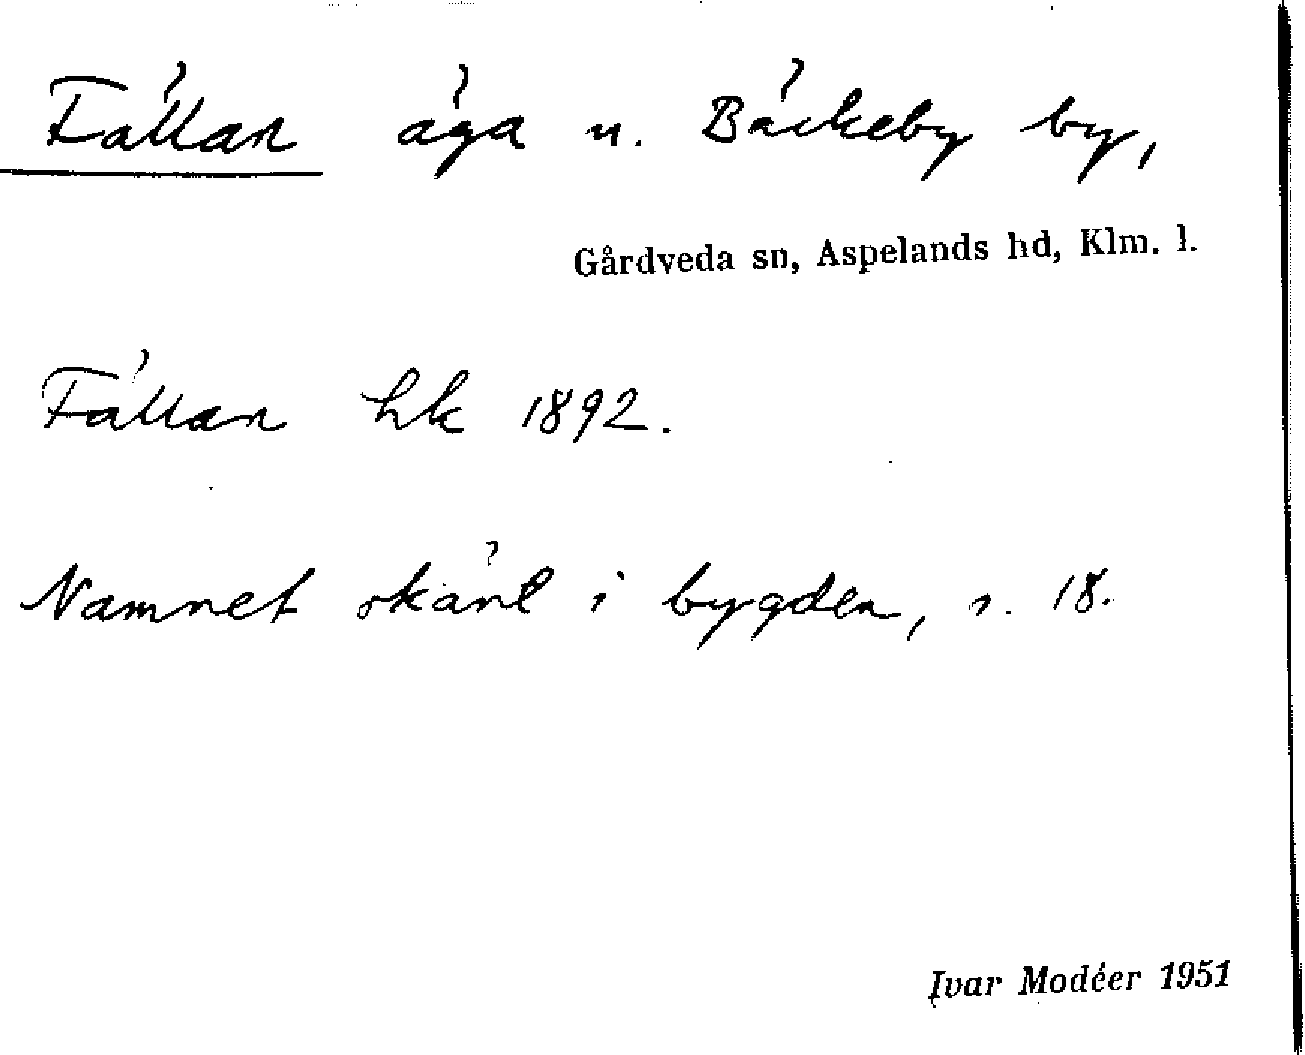 Fällan äga u. Bäckeby by,
Gårdveda sn, Aspelands hd, Klm. l.
Fällan hk 1892.
Namnet känt i bygden, s. 18.
Ivar Modéer 1951